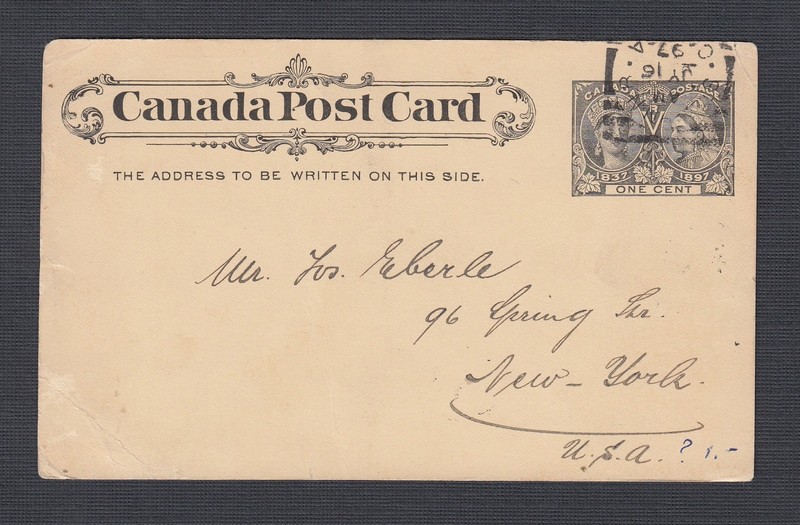 Canada Post Card
THE ADDRESS TO BE WRITTEN ON THIS SIDE.
CANADA POSTAGE
V
R
1837 1897
ONE CENT
16
97
Mr. Jos. Eberle
96 Spring Str.
New-York.
U.S.A. ? 1.-